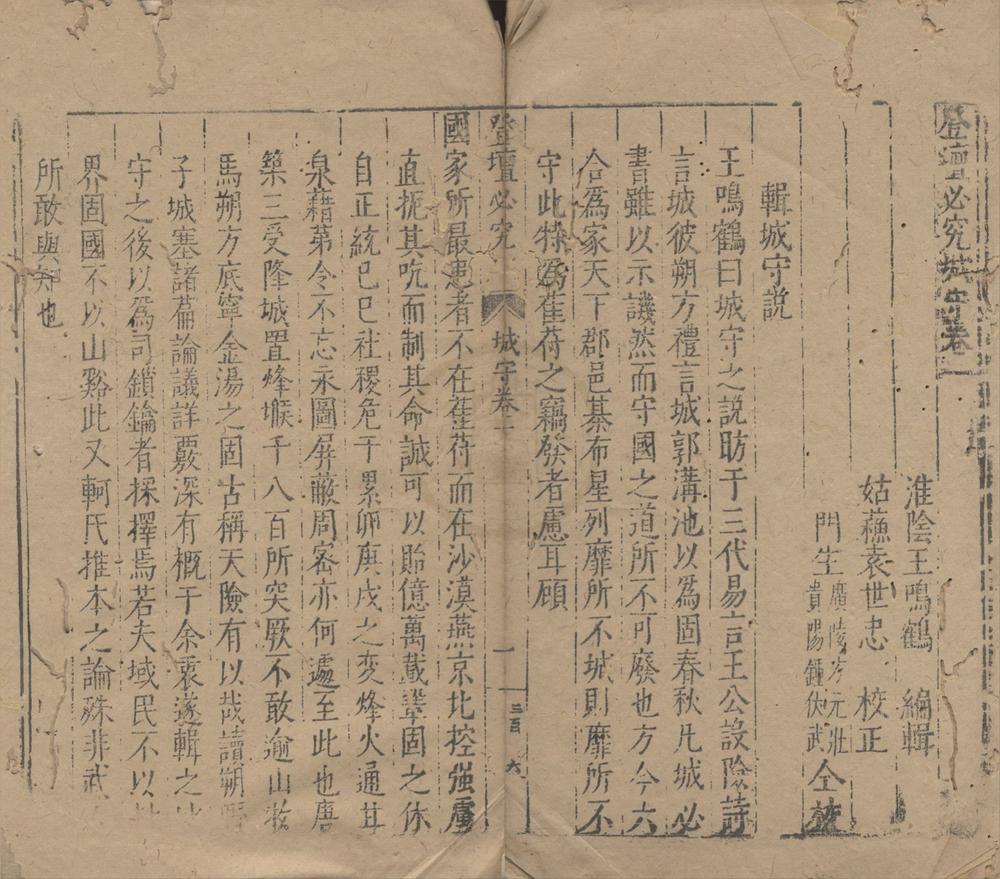 登壇必究城守卷一
淮陰王鳴鶴 編輯
姑蘓袁世忠 校正
門生
廣陵方元壯
貴陽鍾伏武
仝荻
輯城守説
王鳴鶴曰城守之説昉于三代易言王公設險詩
言城彼朔方禮言城郭溝池以爲固春秋凡城必
書雖以示譏然而守國之道所不可廢也方今六
合爲家天下郡邑棊布星列靡所不城則靡所不
守此特爲萑苻之竊發者慮耳顧
登壇必究
城守卷一
一
三百
六
國家所最患者不在萑苻而在沙漠燕京北控強虜
直扼其吭而制其命誠可以貽億萬載鞏固之休
自正統已巳社稷危于累卵庚戌之变烽火通甘
泉藉第令不忘永圖屏蔽周密亦何遽至此也唐
築三受降城置烽堠千八百所突厥不敢逾山牧
馬朔方底寧金湯之固古稱天險有以哉讀朔
子城塞諸篇論議詳覈深有概于余衷遂輯之
守之後以爲司鎖鑰者採擇焉若夫域民不以封
界固國不以山谿此又軻氏推本之論殊非武
所敢與知也